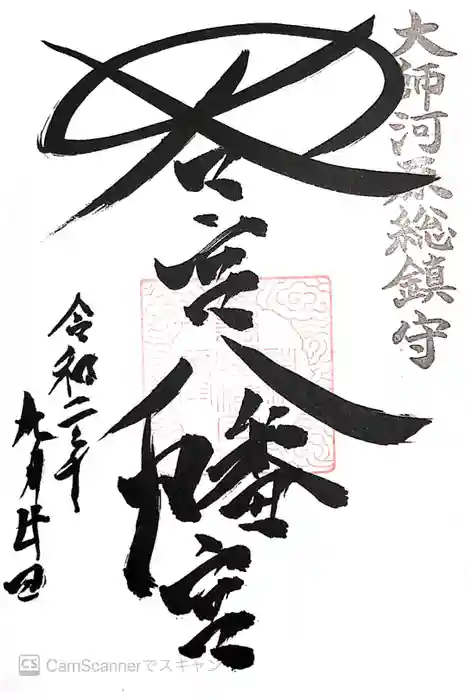 大師河原総鎮守
若宮八幡宮
令和二年
九月廿日
CS CamScannerでスキャン